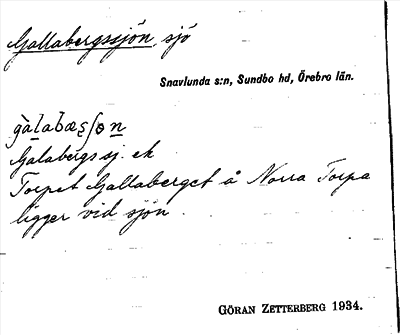 Gallabergssjön, sjö
Snavlunda s:n, Sundbo hd, Örebro län.
Galabergssj. ek
Torpet Gallaberget å Norra Torpa
ligger vid sjön.
GÖRAN ZETTERBERG 1934.